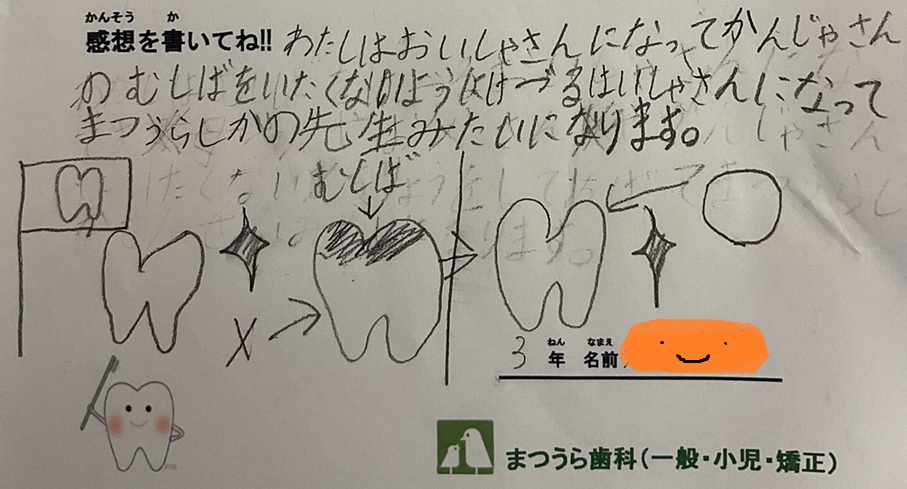 かんそう か
感想を書いてね!! わたしはおいしゃさんになってかんじゃさん
のむしばをいたくないようにけづるはいしゃさんになって
まつうらしかの先生みたいになります。
むしば
×
3 年 名前
ねん なまえ
まつうら歯科(一般・小児・矯正)